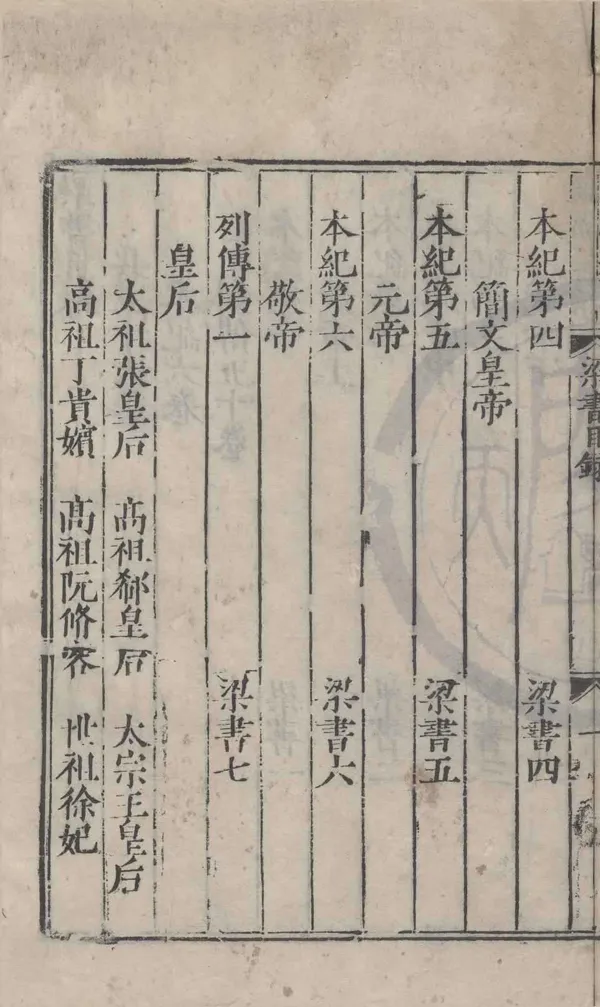 梁書目錄
一
本紀第四 梁書四
簡文皇帝
本紀第五 梁書五
元帝
本紀第六 梁書六
敬帝
列傳第一 梁書七
皇后
太祖張皇后 高祖郗皇后 太宗王皇后
高祖丁貴嬪 高祖阮脩容 世祖徐妃